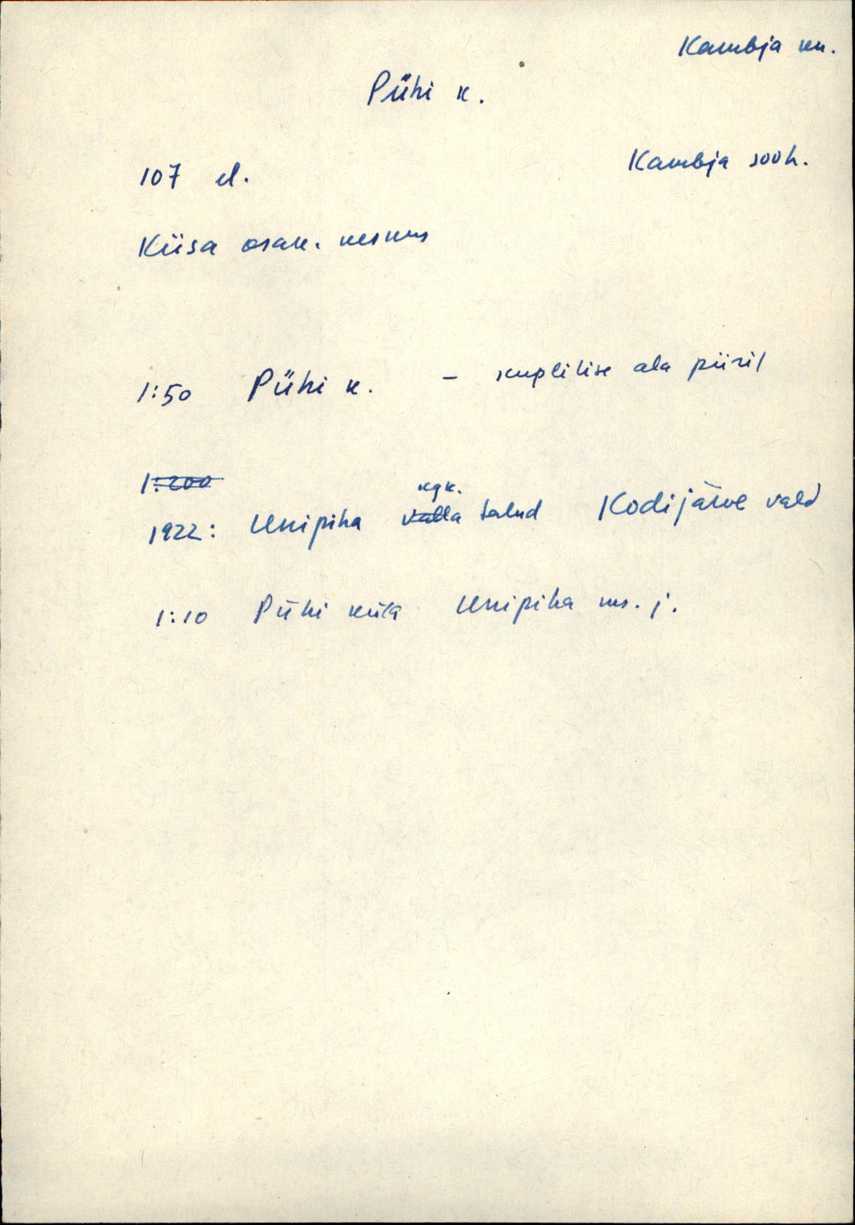 Kambja kn.
Pühi k.
107 el.
Kambja sovh.
Kiisa osak. keskus
1:50 Pühi k. – kuplilise ala piiril
1:200
kgk.
1922: Unipiha valla talud Kodijärve vald
1:10 Pühi küla Unipiha ms. j.